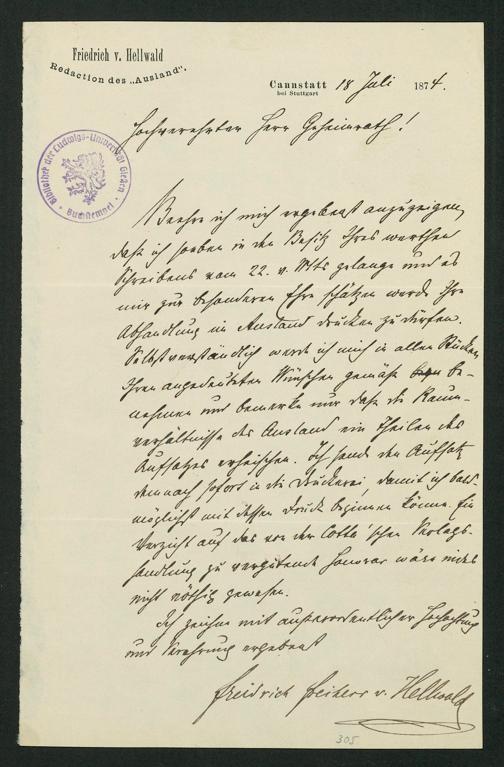 Friedrich v. Hellwald
Redaction des „Ausland".
Cannstatt 18 Juli 1874.
bei Stuttgart
Hochverehrter Herr Geheimrath!
Bibliothek der Ludwigs-Universität Gießen
Buchstempel
Beehre ich mich ergebenst anzuzeigen,
daß ich soeben in den Besitz Ihres werthen
Schreibens vom 22. v. Mts gelange und es
mir zur besonderen Ehre schätzen werde Ihre
Abhandlung im Ausland drucken zu dürfen.
Selbstverständlich werde ich mich in allen Stücken
Ihren angedeuteten Wünschen gemäß be-
nehmen und bemerke nur daß die Raum-
verhältnisse des Ausland ein Theilen des
Aufsatzes erheischen. Ich sende den Aufsatz
demnach sofort in die Druckerei, damit ich bald-
möglichst mit dessen Druck beginnen könne. Ein
Verzicht auf das von der Cotta'schen Verlags-
handlung zu vergütende Honorar wäre indes
nicht nöthig gewesen.
Ich zeichne mit außerordentlicher Hochachtung
und Verehrung ergebenst
Friedrich Freiherr v. Hellwald
305